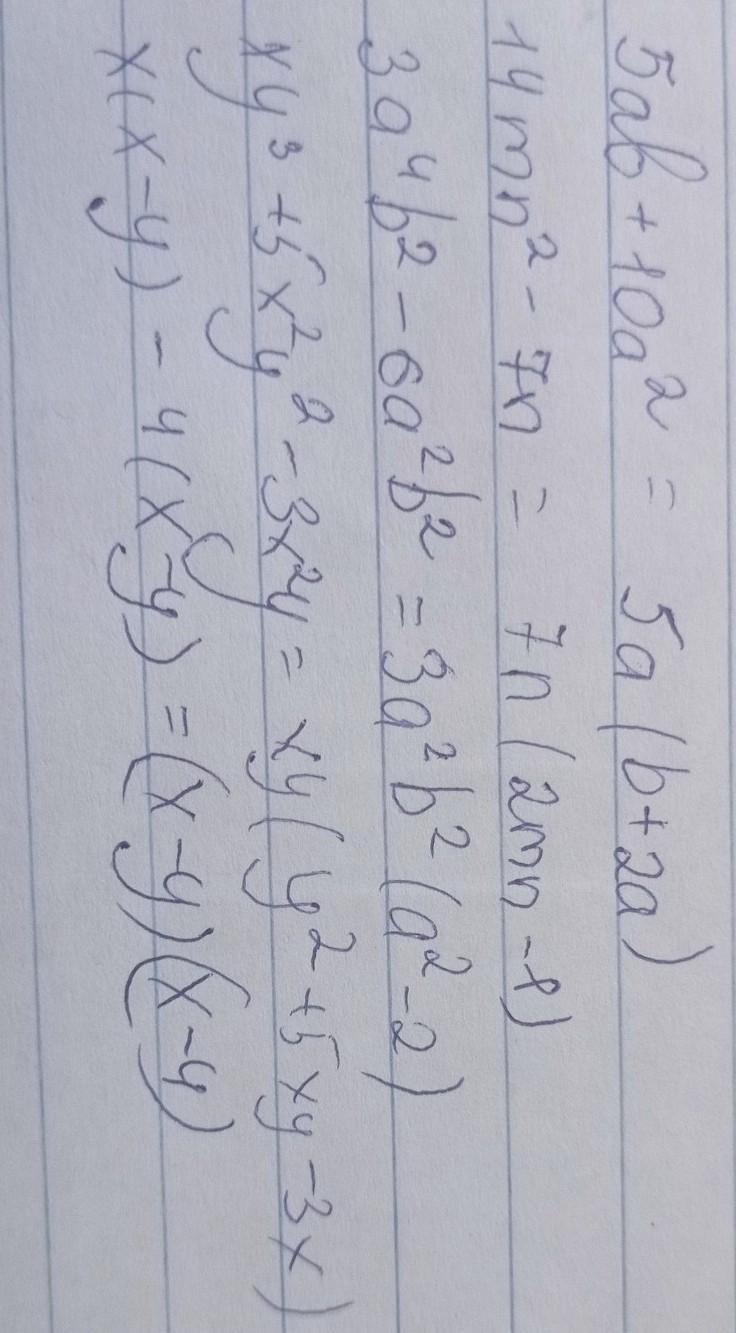 5ab + 10a² = 5a(b+2a)
14mn² - 7n = 7n(2mn-1)
3a⁴b² - 6a²b² = 3a²b²(a²-2)
xy³ + 5x²y² - 3x²y = xy(y² + 5xy - 3x)
x(x-y) - 4(x-y) = (x-y)(x-4)